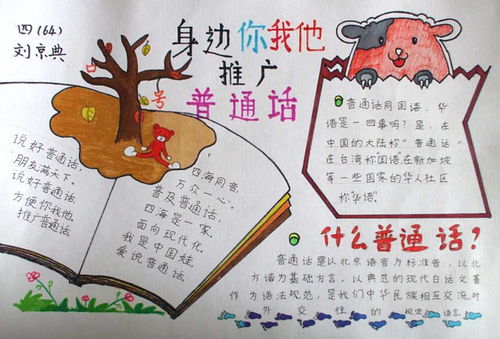 四(64)
刘京典
身边你我他
推广
普通话
口号
说好普通话，
朋友满天下。
说好普通话
方便你我他
推广普通话
四海同音
万众一心，
普及普通话，
四海是一家
面向现代化。
我是中国娃，
爱说普通话
普通话同国语、华
语是一回事吗？是，在
中国的大陆称"普通话"
在台湾称国语在新加坡
等一些国家的华人社区
称"华语"
什么普通话？
普通话是以北京语音为标准音，以北
方话为基础方言，以典范的现代白话文著
作为语法规范，是我们中华民族相互交流对
外交往的规定语言